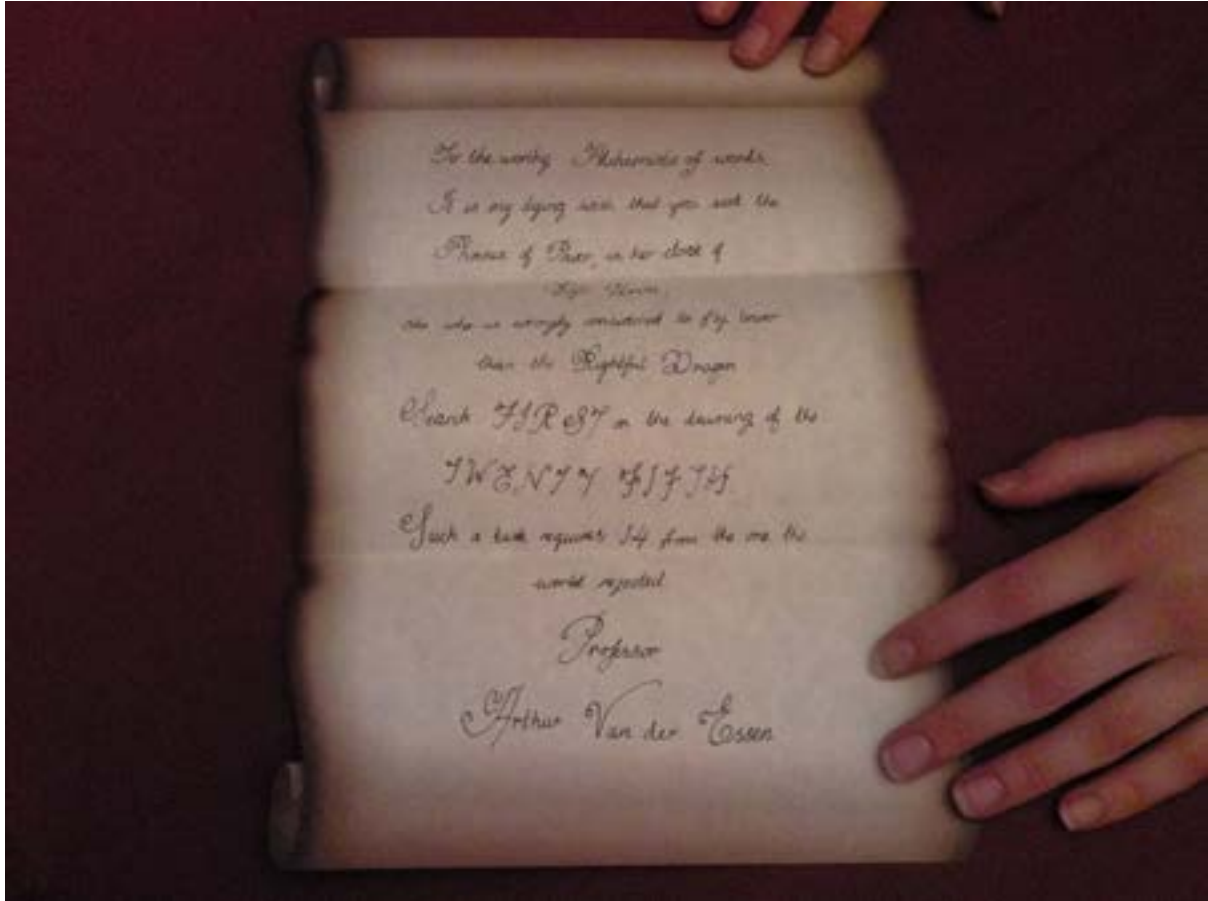 To the worthy Alchemists of words,
It is my dying wish that you seek the
Phoenix of Power, in her cloak of
she who is wrongly considered to fly lower
than the Rightful Dragon
Search FIRST on the dawning of the
TWENTY FIFTH
Such a task requires 14 from the one the
world rejected
Professor
Arthur Van der Essen